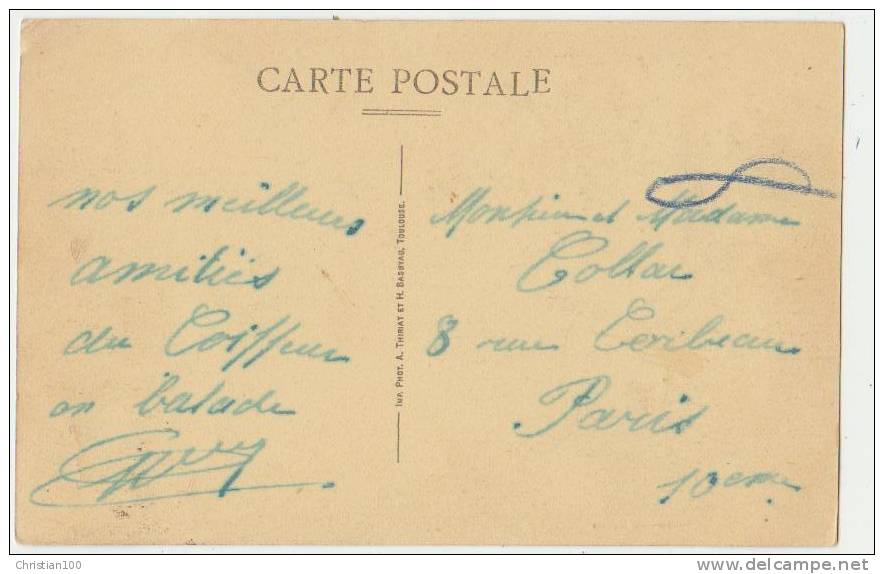 CARTE POSTALE
nos meilleurs
amitiés
du Coiffeur
en balade
IMP. PHOT. A. THIRIAT ET H. BASUYAU, TOULOUSE.
Monsieur et Madame
Collar
8 rue Corbeau
Paris
10eme
Christian100
delcampe.net